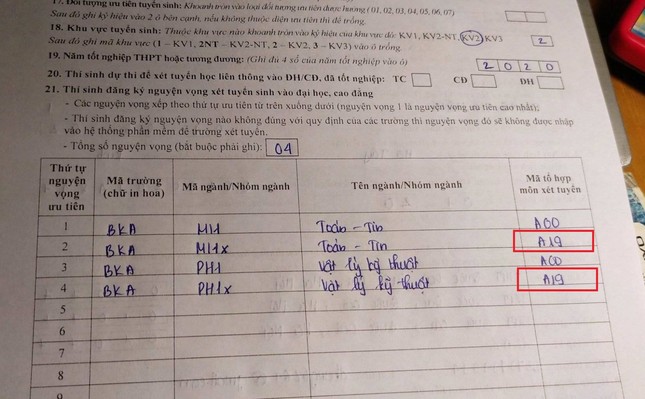 17. Đối tượng ưu tiên tuyển sinh: Khoanh tròn vào loại đối tượng ưu tiên được hưởng ( 01, 02, 03, 04, 05, 06, 07)
Sau đó ghi ký hiệu vào 2 ô bên cạnh, nếu không thuộc diện ưu tiên thì để trống.
18. Khu vực tuyển sinh: Thuộc khu vực nào khoanh tròn vào ký hiệu của khu vực đó: KV1, KV2-NT, KV2, KV3
Sau đó ghi mã khu vực (1 – KV1, 2NT – KV2-NT, 2 – KV2, 3 – KV3) vào ô trống. 2
19. Năm tốt nghiệp THPT hoặc tương đương: (Ghi đủ 4 số của năm tốt nghiệp vào ô) 2 0 2 0
20. Thí sinh dự thi để xét tuyển học liên thông vào ĐH/CĐ, đã tốt nghiệp: TC CĐ ĐH
21. Thí sinh đăng ký nguyện vọng xét tuyển sinh vào đại học, cao đẳng
- Các nguyện vọng xếp theo thứ tự ưu tiên từ trên xuống dưới (nguyện vọng 1 là nguyện vọng ưu tiên cao nhất);
- Thí sinh đăng ký nguyện vọng nào không đúng với quy định của các trường thì nguyện vọng đó sẽ không được nhập
vào hệ thống phần mềm để trường xét tuyển.
- Tổng số nguyện vọng (bắt buộc phải ghi): 04
Thứ tự nguyện vọng ưu tiên Mã trường (chữ in hoa) Mã ngành/Nhóm ngành Tên ngành/Nhóm ngành Mã tổ hợp môn xét tuyển
1 BKA MI1 Toán - Tin A00
2 BKA MI1x Toán - Tin A19
3 BKA PH1 Vật lý kỹ thuật A00
4 BKA PH1x Vật lý kỹ thuật A19
5
6
7
8
9